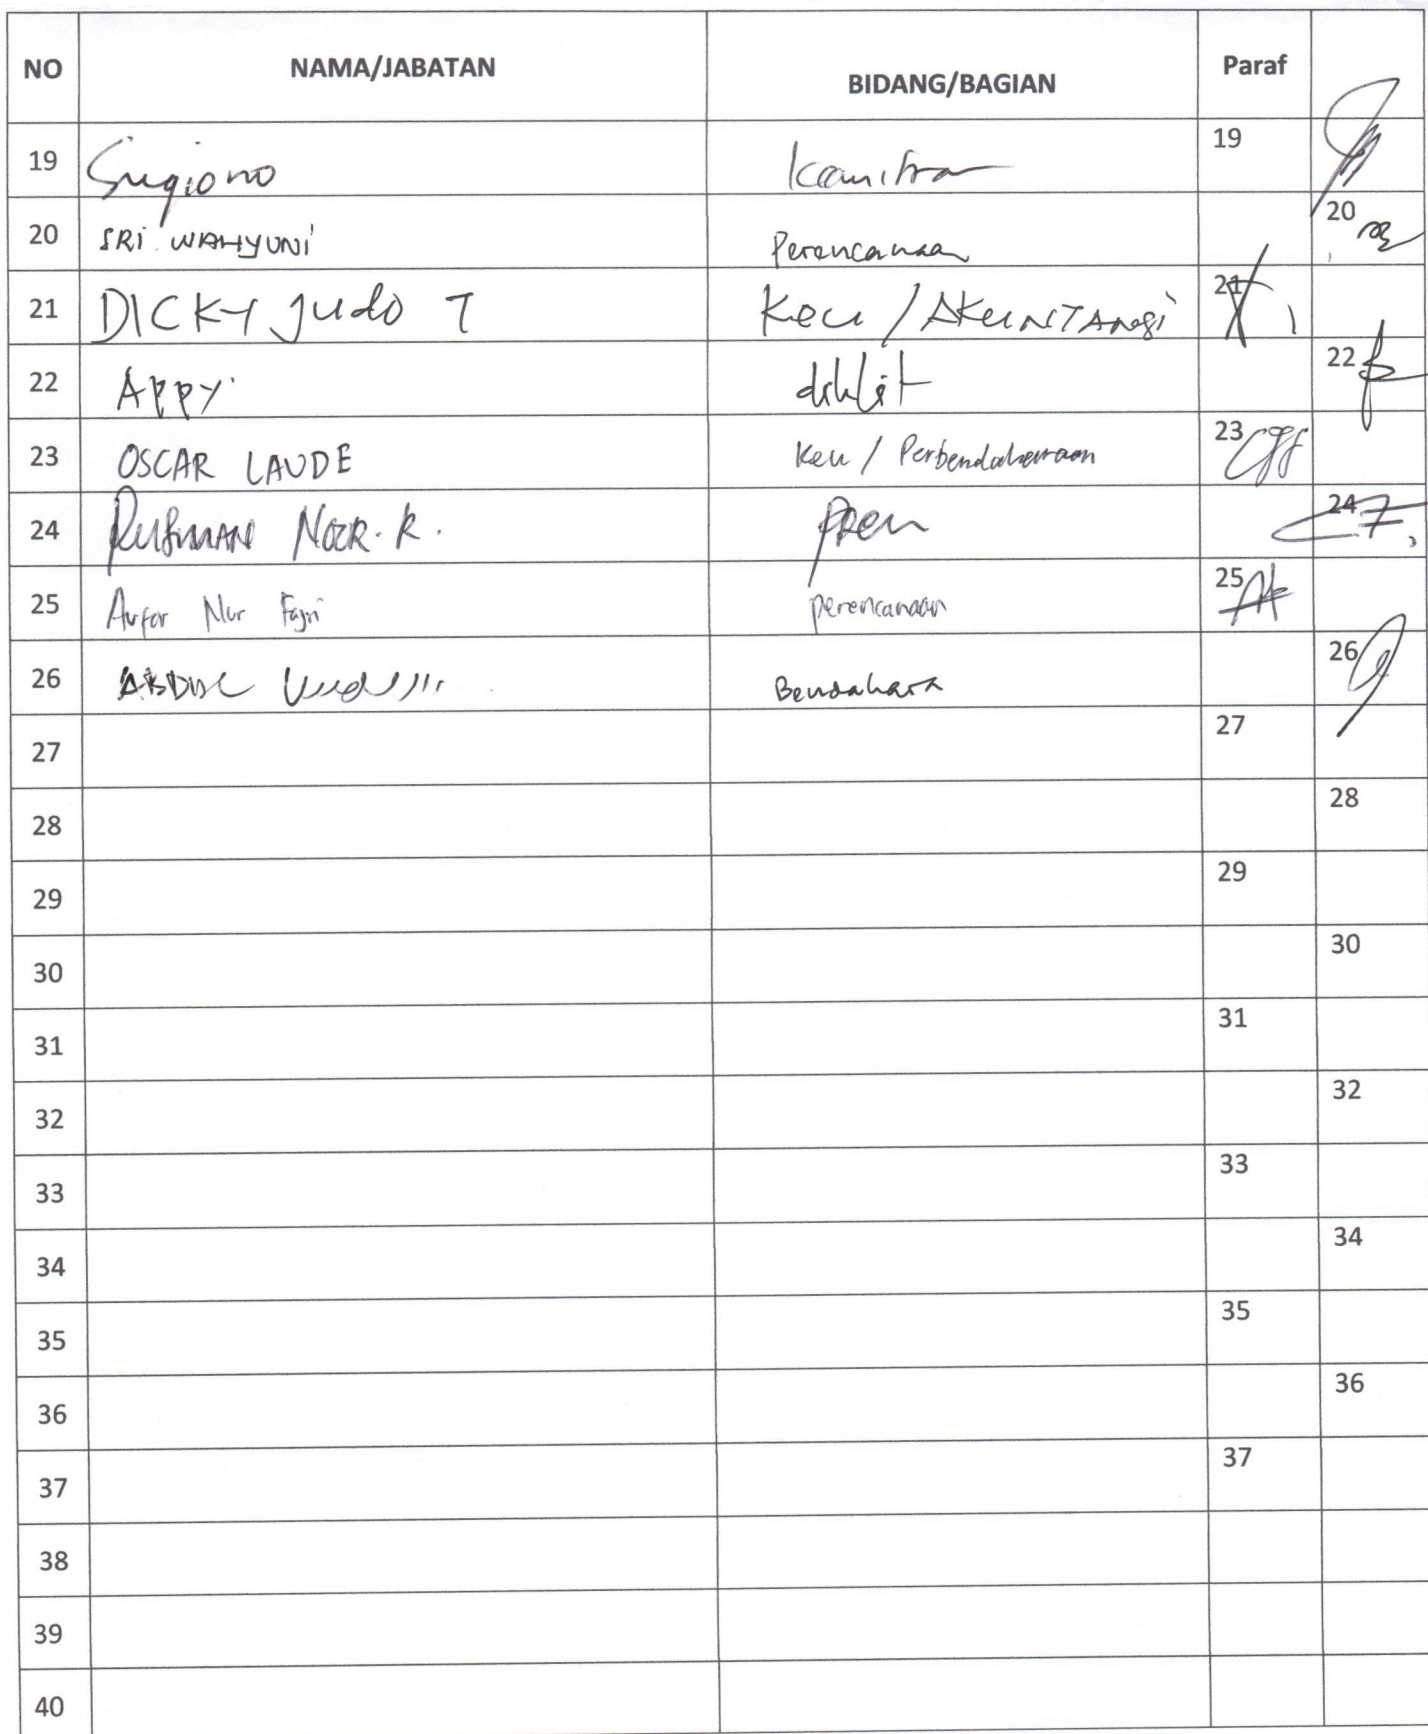 NO NAMA/JABATAN BIDANG/BAGIAN Paraf
19 Sugiono 19
20 SRI WAHYUNI Perencanaan 20
21 DICKY Judo T Keu / AKUNTANSi 21
22 APPY diklit 22
23 OSCAR LAUDE Keu / Perbendaharaan 23
24 NOOR. R. 24
25 Nur Fajri perencanaan 25
26 ABDUL Bendahara 26
27 27
28 28
29 29
30 30
31 31
32 32
33 33
34 34
35 35
36 36
37 37
38
39
40